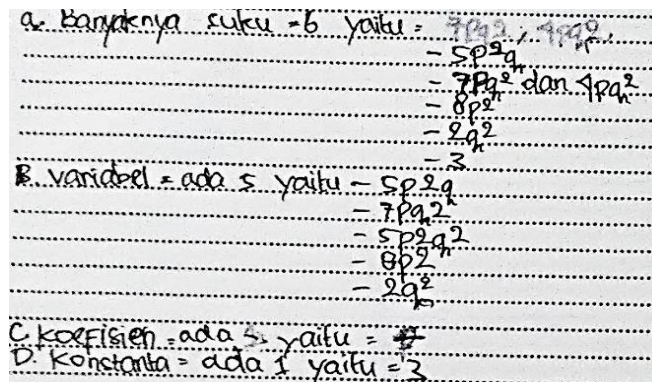 a. Banyaknya suku = 6 yaitu = 7pq2, 4pq2,
- 5p2q
- 7pq2 dan 4pq2
- 8p2
- 2q2
- 3
B. Variabel = ada 5 yaitu - 5p2q
- 7pq2
- 5p2q2
- 8p2
- 2q2
C. Koefisien = ada 5 yaitu =
D. Konstanta = ada 1 yaitu = 3